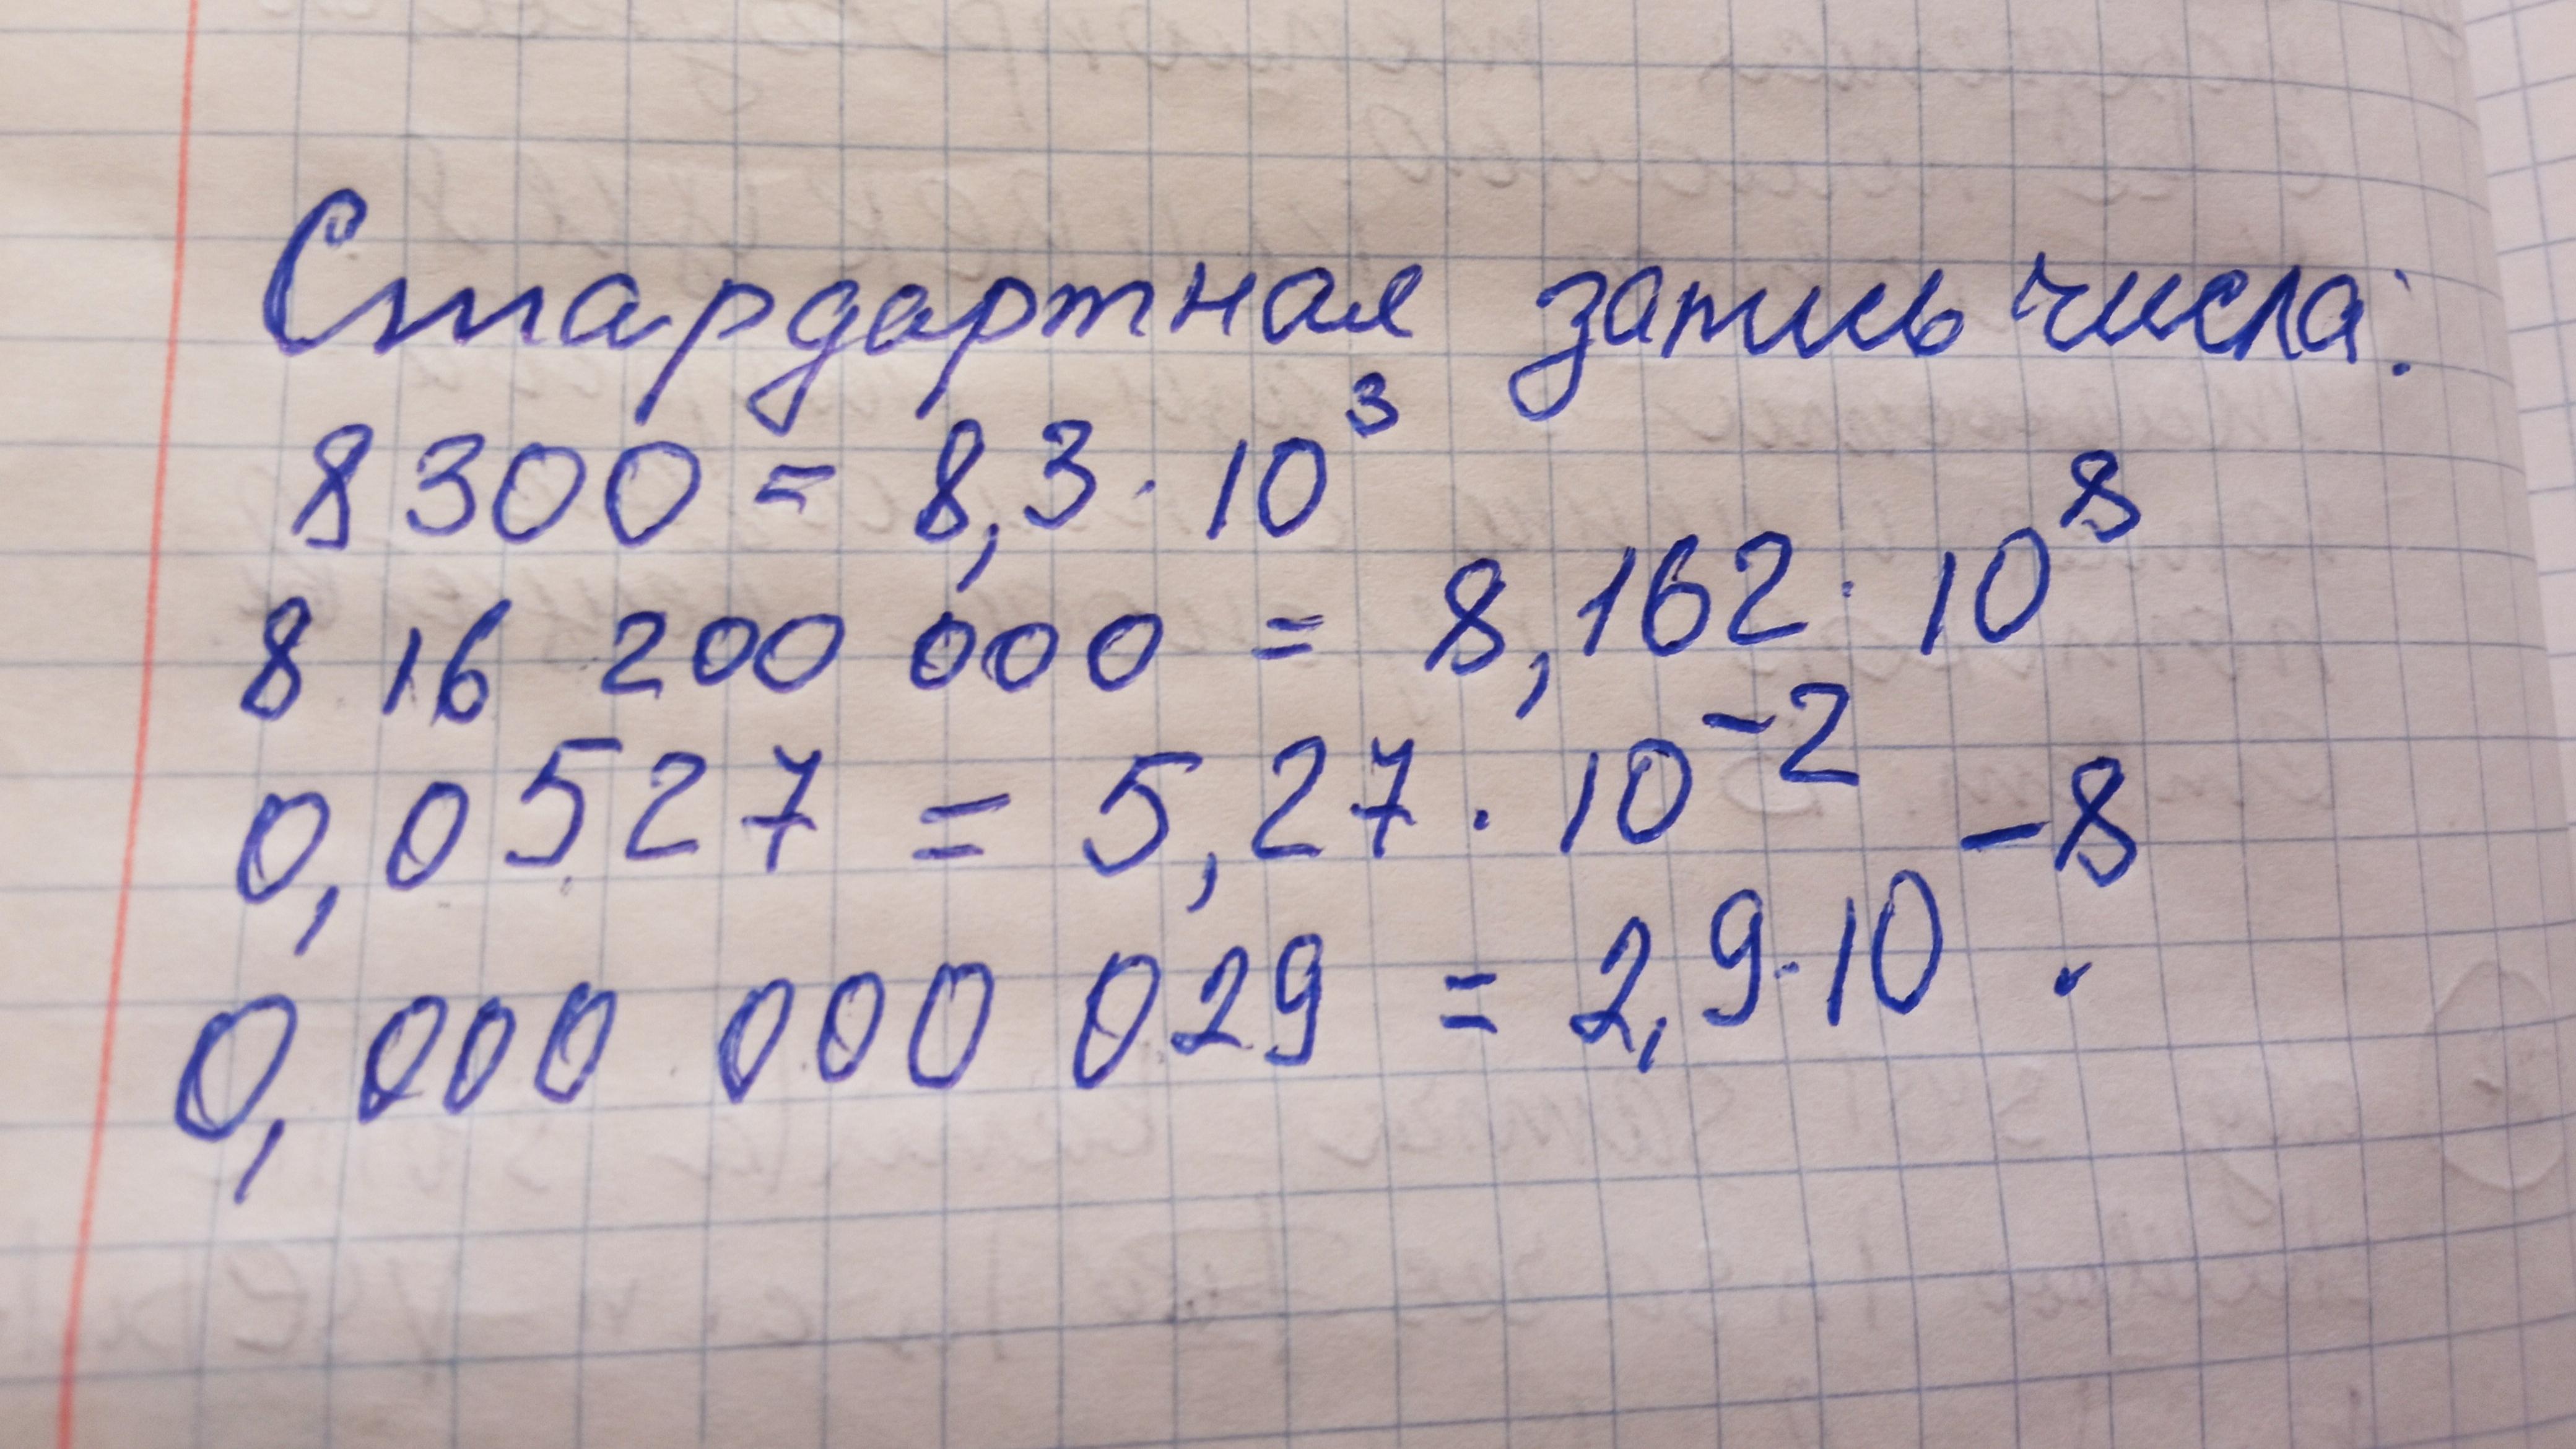 Стардартная запись числа:
8300 = 8,3 · 10³
8 16 200 000 = 8,162 · 10⁸
0,0527 = 5,27 · 10⁻²
0,000 000 029 = 2,9 · 10⁻⁸.